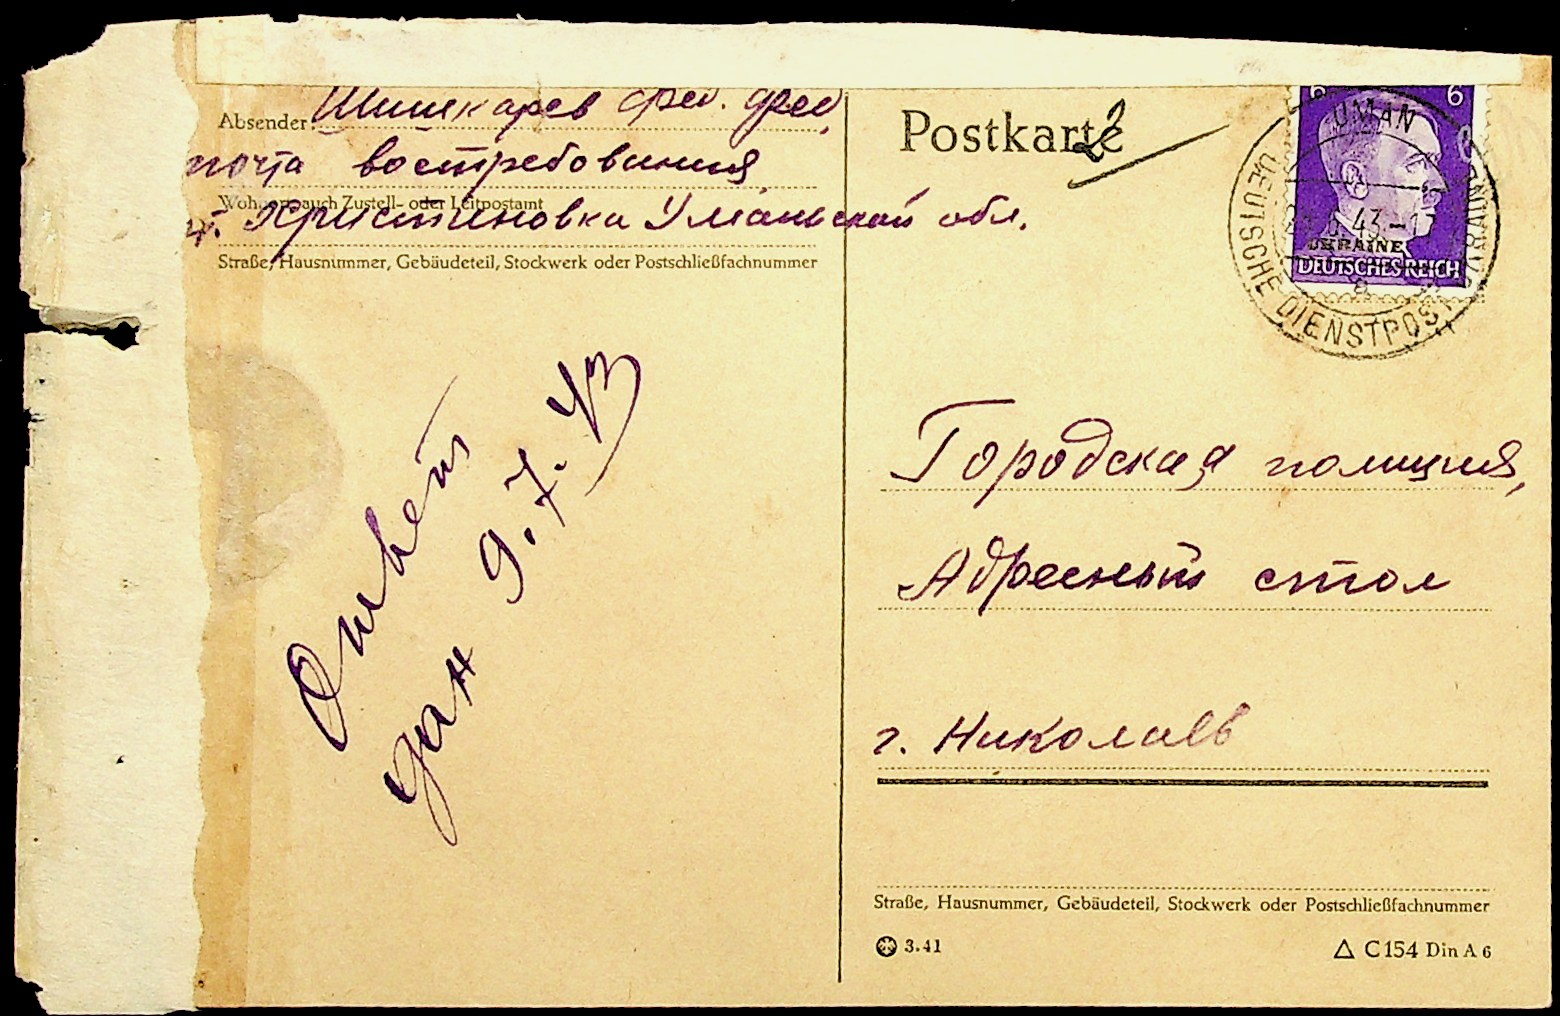 Absender: Шишкарев Фед. Фед.
почта востребования
Wohnort, auch Zustell- oder Leitpostamt
ст. Христиновка Уманьской обл.
Straße, Hausnummer, Gebäudeteil, Stockwerk oder Postschließfachnummer
Ответ
дан 9.7.43
Postkarte
2
6 6
UKRAINE
DEUTSCHES REICH
UMAN
43-1
DEUTSCHE DIENSTPOST UKRAINE
Городская полиция,
Адресный стол
г. Николаев
Straße, Hausnummer, Gebäudeteil, Stockwerk oder Postschließfachnummer
3.41
C 154 Din A 6